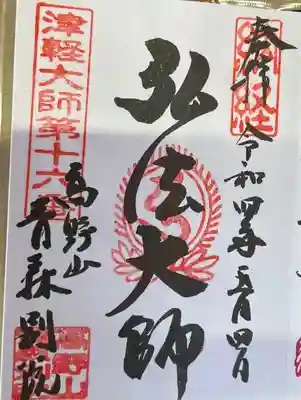 奉拝
令和四年五月四日
弘法大師
高野山
青森別院
津軽大師第十六番